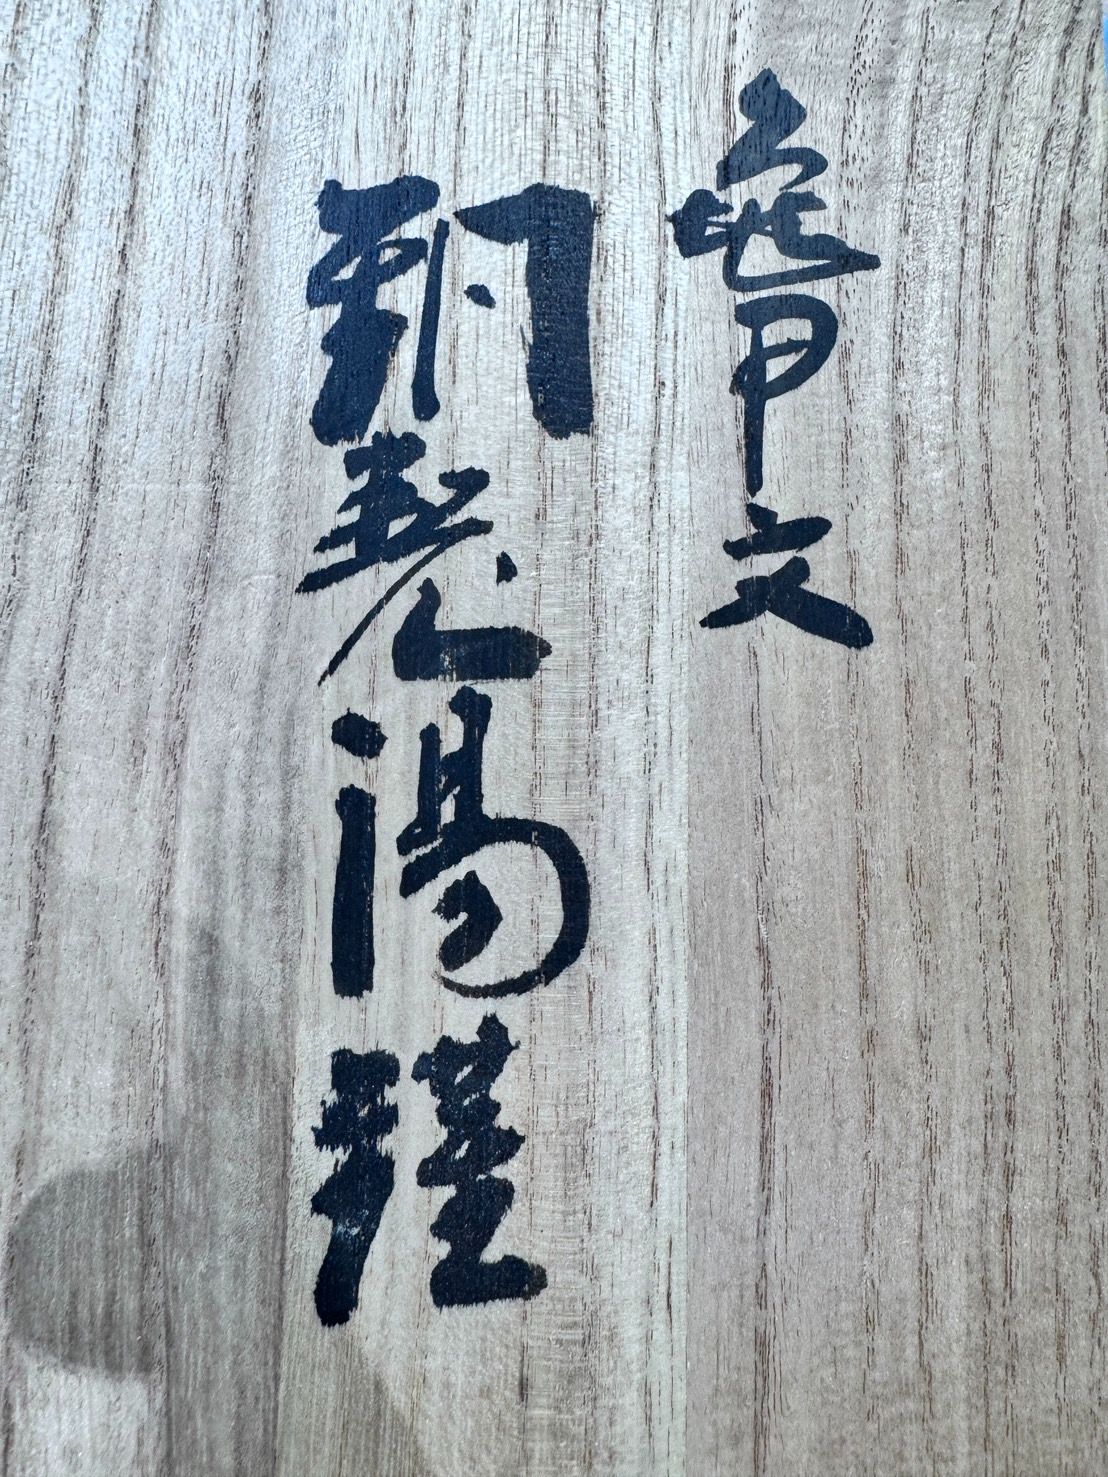 亀甲文
銅製湯鑵